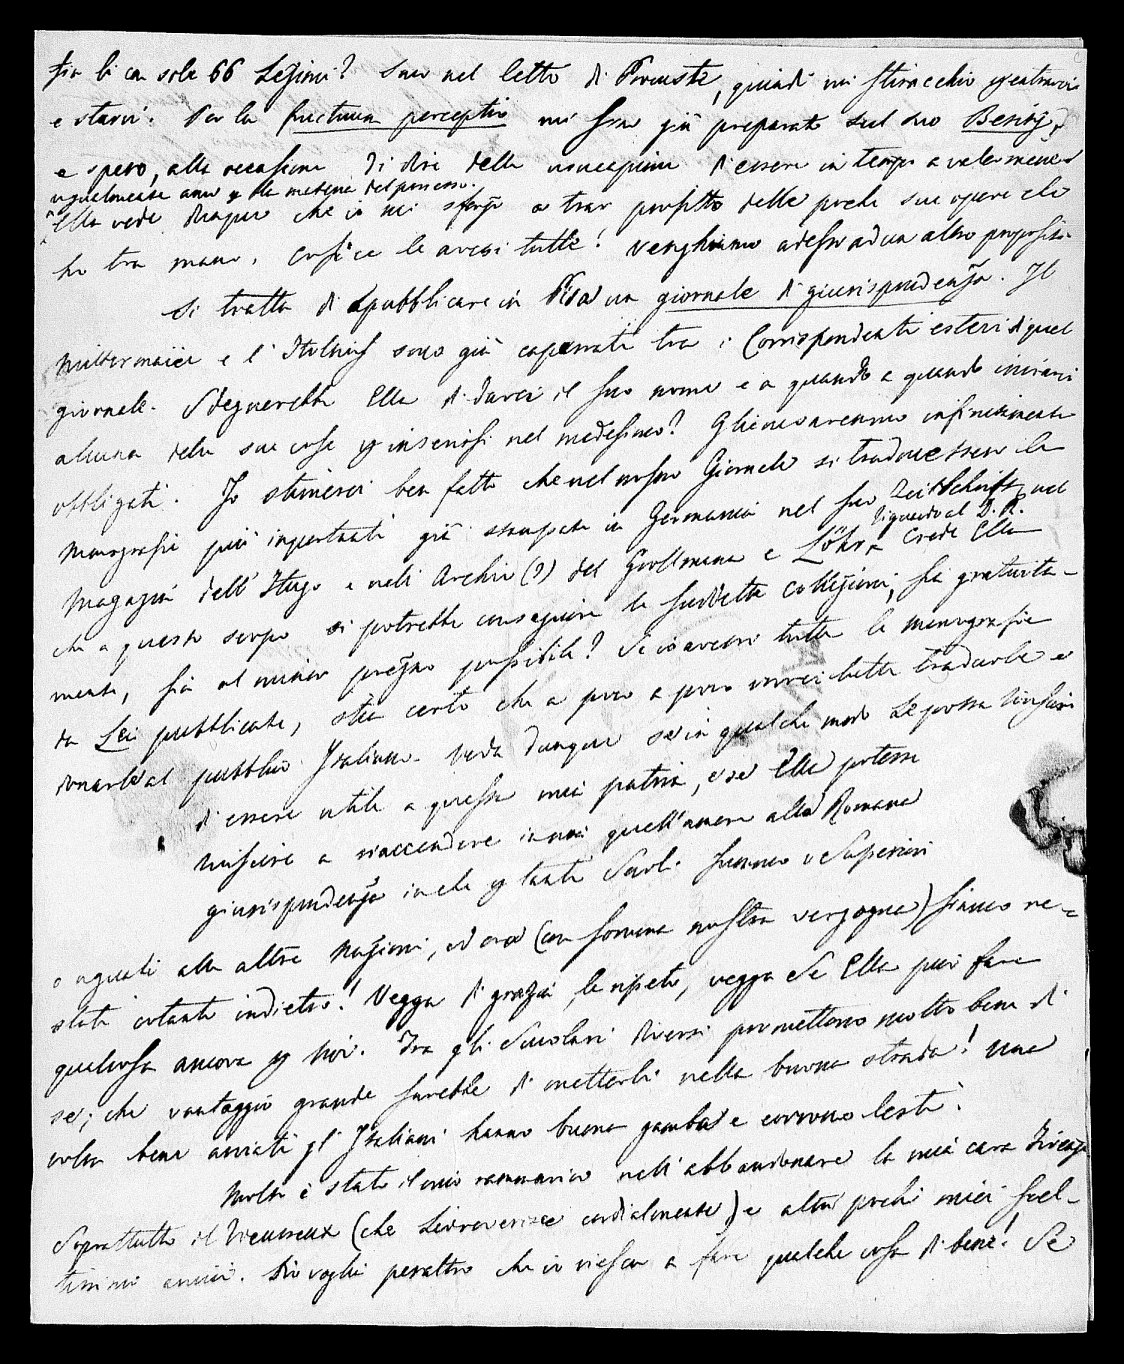 sia li con sole 66 Lezioni? Sono nel letto di Procuste, quindi mi stiracchio p entrarvi
e starvi. Per la fructuum perceptio mi sono già preparato sul suo Besitz,
e spero, alla occasione di dire della usucapione d'essere in tempo a valermene
ugualmente anco p la materia del possesso.
Ella vede dunque che io mi sforzo a trar profitto delle poche sue opere che
ho tra mano. Così ce le avessi tutte! Venghiamo adesso ad un altro proposito.
Si tratta di pubblicare in Pisa un giornale di giurisprudenza. Il
Mittermaier e l' sono già caparrati tra i Corrispondenti esteri di quel
giornale. Sdegnerebbe Ella di darci il suo nome e a quando a quando inviarci
alcuna delle sue cose p inserirsi nel medesimo? Gliene saremmo infinitamente
obbligati. Io stimerei ben fatto che nel nostro Giornale si traducessero le
Monografie più importanti già stampate in Germania nel suo Zeitschrift, nel
Magazin dell'Hugo e nelli Archiv (?) del Grollmann e Löhr riguardo al D. R. Crede Ella
che a questo scopo si potrebbe conseguire le suddette collezioni, sia gratuita-
mente, sia al minor prezzo possibile? Se io avessi tutte le monografie
da Lei pubblicate, stia certo che a poco a poco vorrei tutte tradurle e
donarle al pubblico Italiano. Veda dunque se in qualche modo Le possa riuscire
di essere utile a questa mia patria, e se Ella potesse
riuscire a riaccendere in noi quell'amore alla Romana
giurisprudenza in che p tanti Secoli fummo o Superiori
o uguali alle altre Nazioni, ed ora (con somma nostra vergogna) siamo re-
stati cotanto indietro! Vegga di grazia, le ripeto, vegga se Ella può fare
qualcosa ancora p noi. Tra gli Scolari diversi promettono molto bene di
se; che vantaggio grande sarebbe di metterli nella buona strada! Una
volta bene avviati gl'Italiani hanno buone gambe e corrono lesti.
Molto è stato il mio rammarico nell'abbandonare la mia cara Firenze
Soprattutto il Vieusseux (che La riverisce cordialmente) e altri pochi miei scel-
tissimi amici. Dio voglia peraltro che io riesca a fare qualche cosa di bene! Se